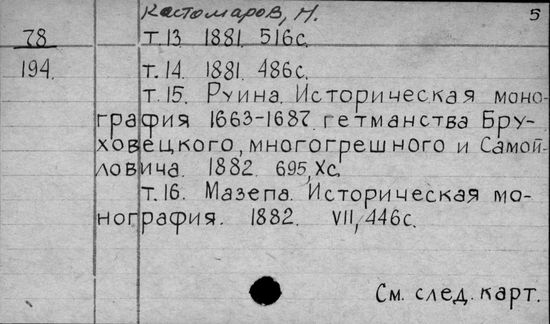 Костомаров, Н. 5
78 т.13 1881. 516с.
194. т.14. 1881. 486с.
т.15. Руина. Историческая моно-
графия 1663-1687. гетманства Бру-
ховецкого, многогрешного и Самой-
ловича. 1882. 695, Xс.
т.16. Мазепа. Историческая мо-
нография. 1882. VII, 446с.
См. след. карт.